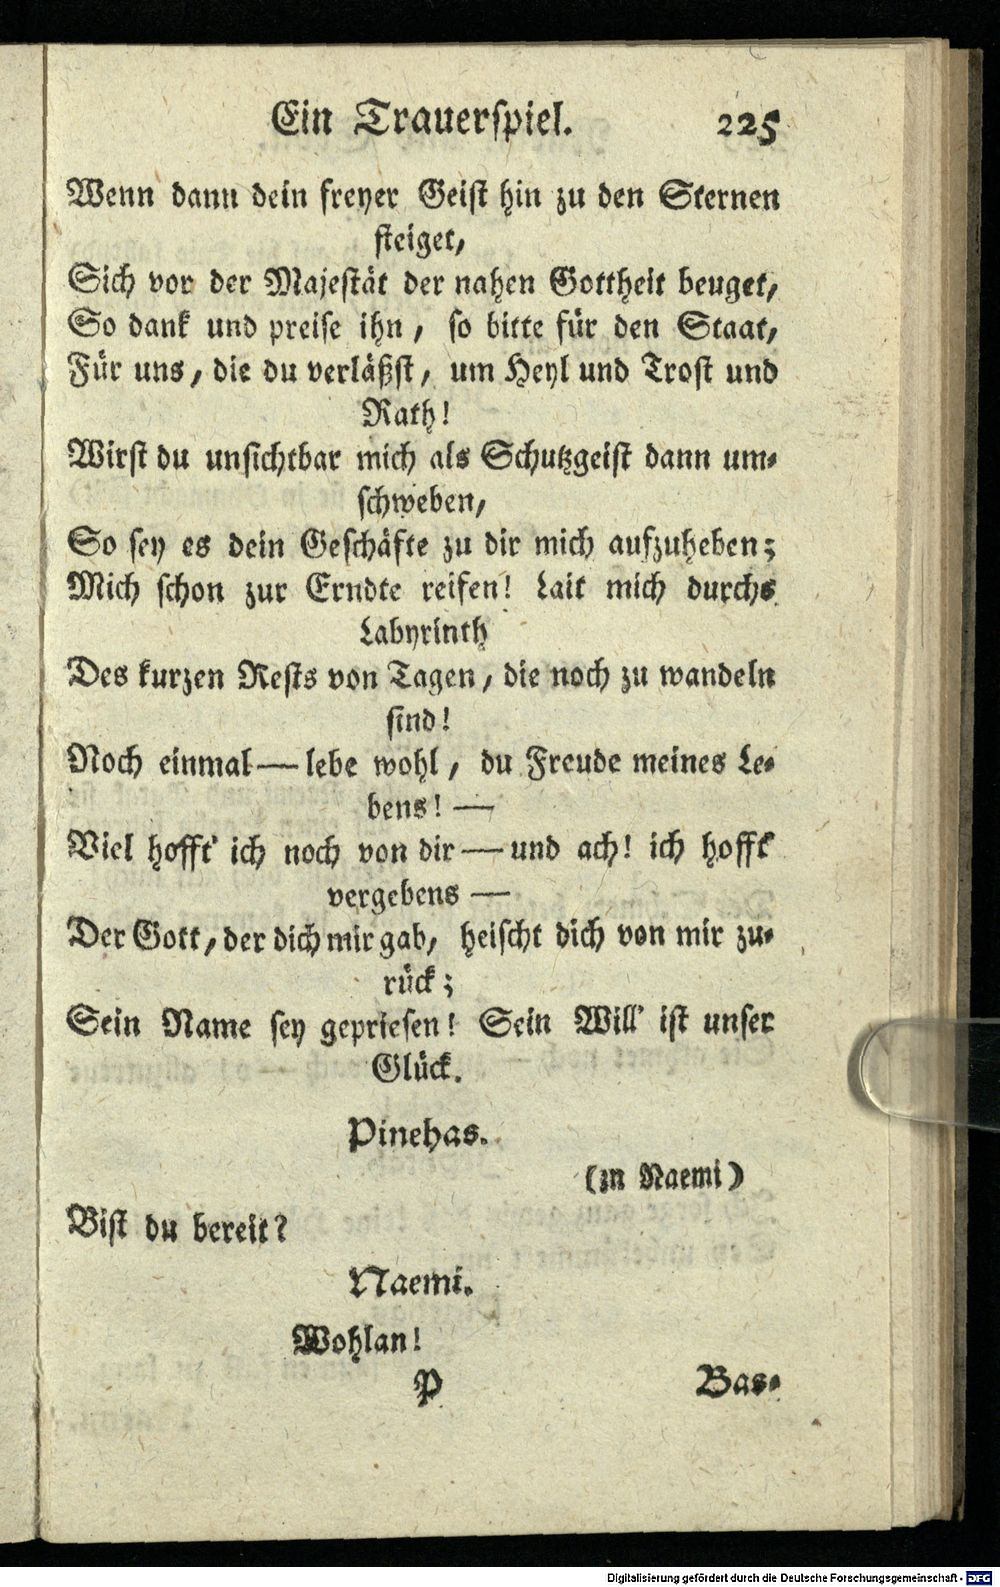 Ein Trauerſpiel. 225
Wenn dann dein freyer Geiſt hin zu den Sternen
ſteiget,
Sich vor der Majeſtät der nahen Gottheit beuget,
So dank und preiſe ihn, ſo bitte für den Staat,
Für uns, die du verläßſt, um Heyl und Troſt und
Rath!
Wirſt du unſichtbar mich als Schutzgeiſt dann um-
ſchweben,
So ſey es dein Geſchäfte zu dir mich aufzuheben;
Mich ſchon zur Erndte reifen! Lait mich durchs
Labyrinth
Des kurzen Reſts von Tagen, die noch zu wandeln
ſind!
Noch einmal — lebe wohl, du Freude meines Le-
bens! —
Viel hofft' ich noch von dir — und ach! ich hofft'
vergebens —
Der Gott, der dich mir gab, heiſcht dich von mir zu-
rück;
Sein Name ſey geprieſen! Sein Will' iſt unſer
Glück.
Pinehas.
(zu Naemi)
Biſt du bereit?
Naemi.
Wohlan!
P Bas-
Digitalisierung gefördert durch die Deutsche Forschungsgemeinschaft - DFG